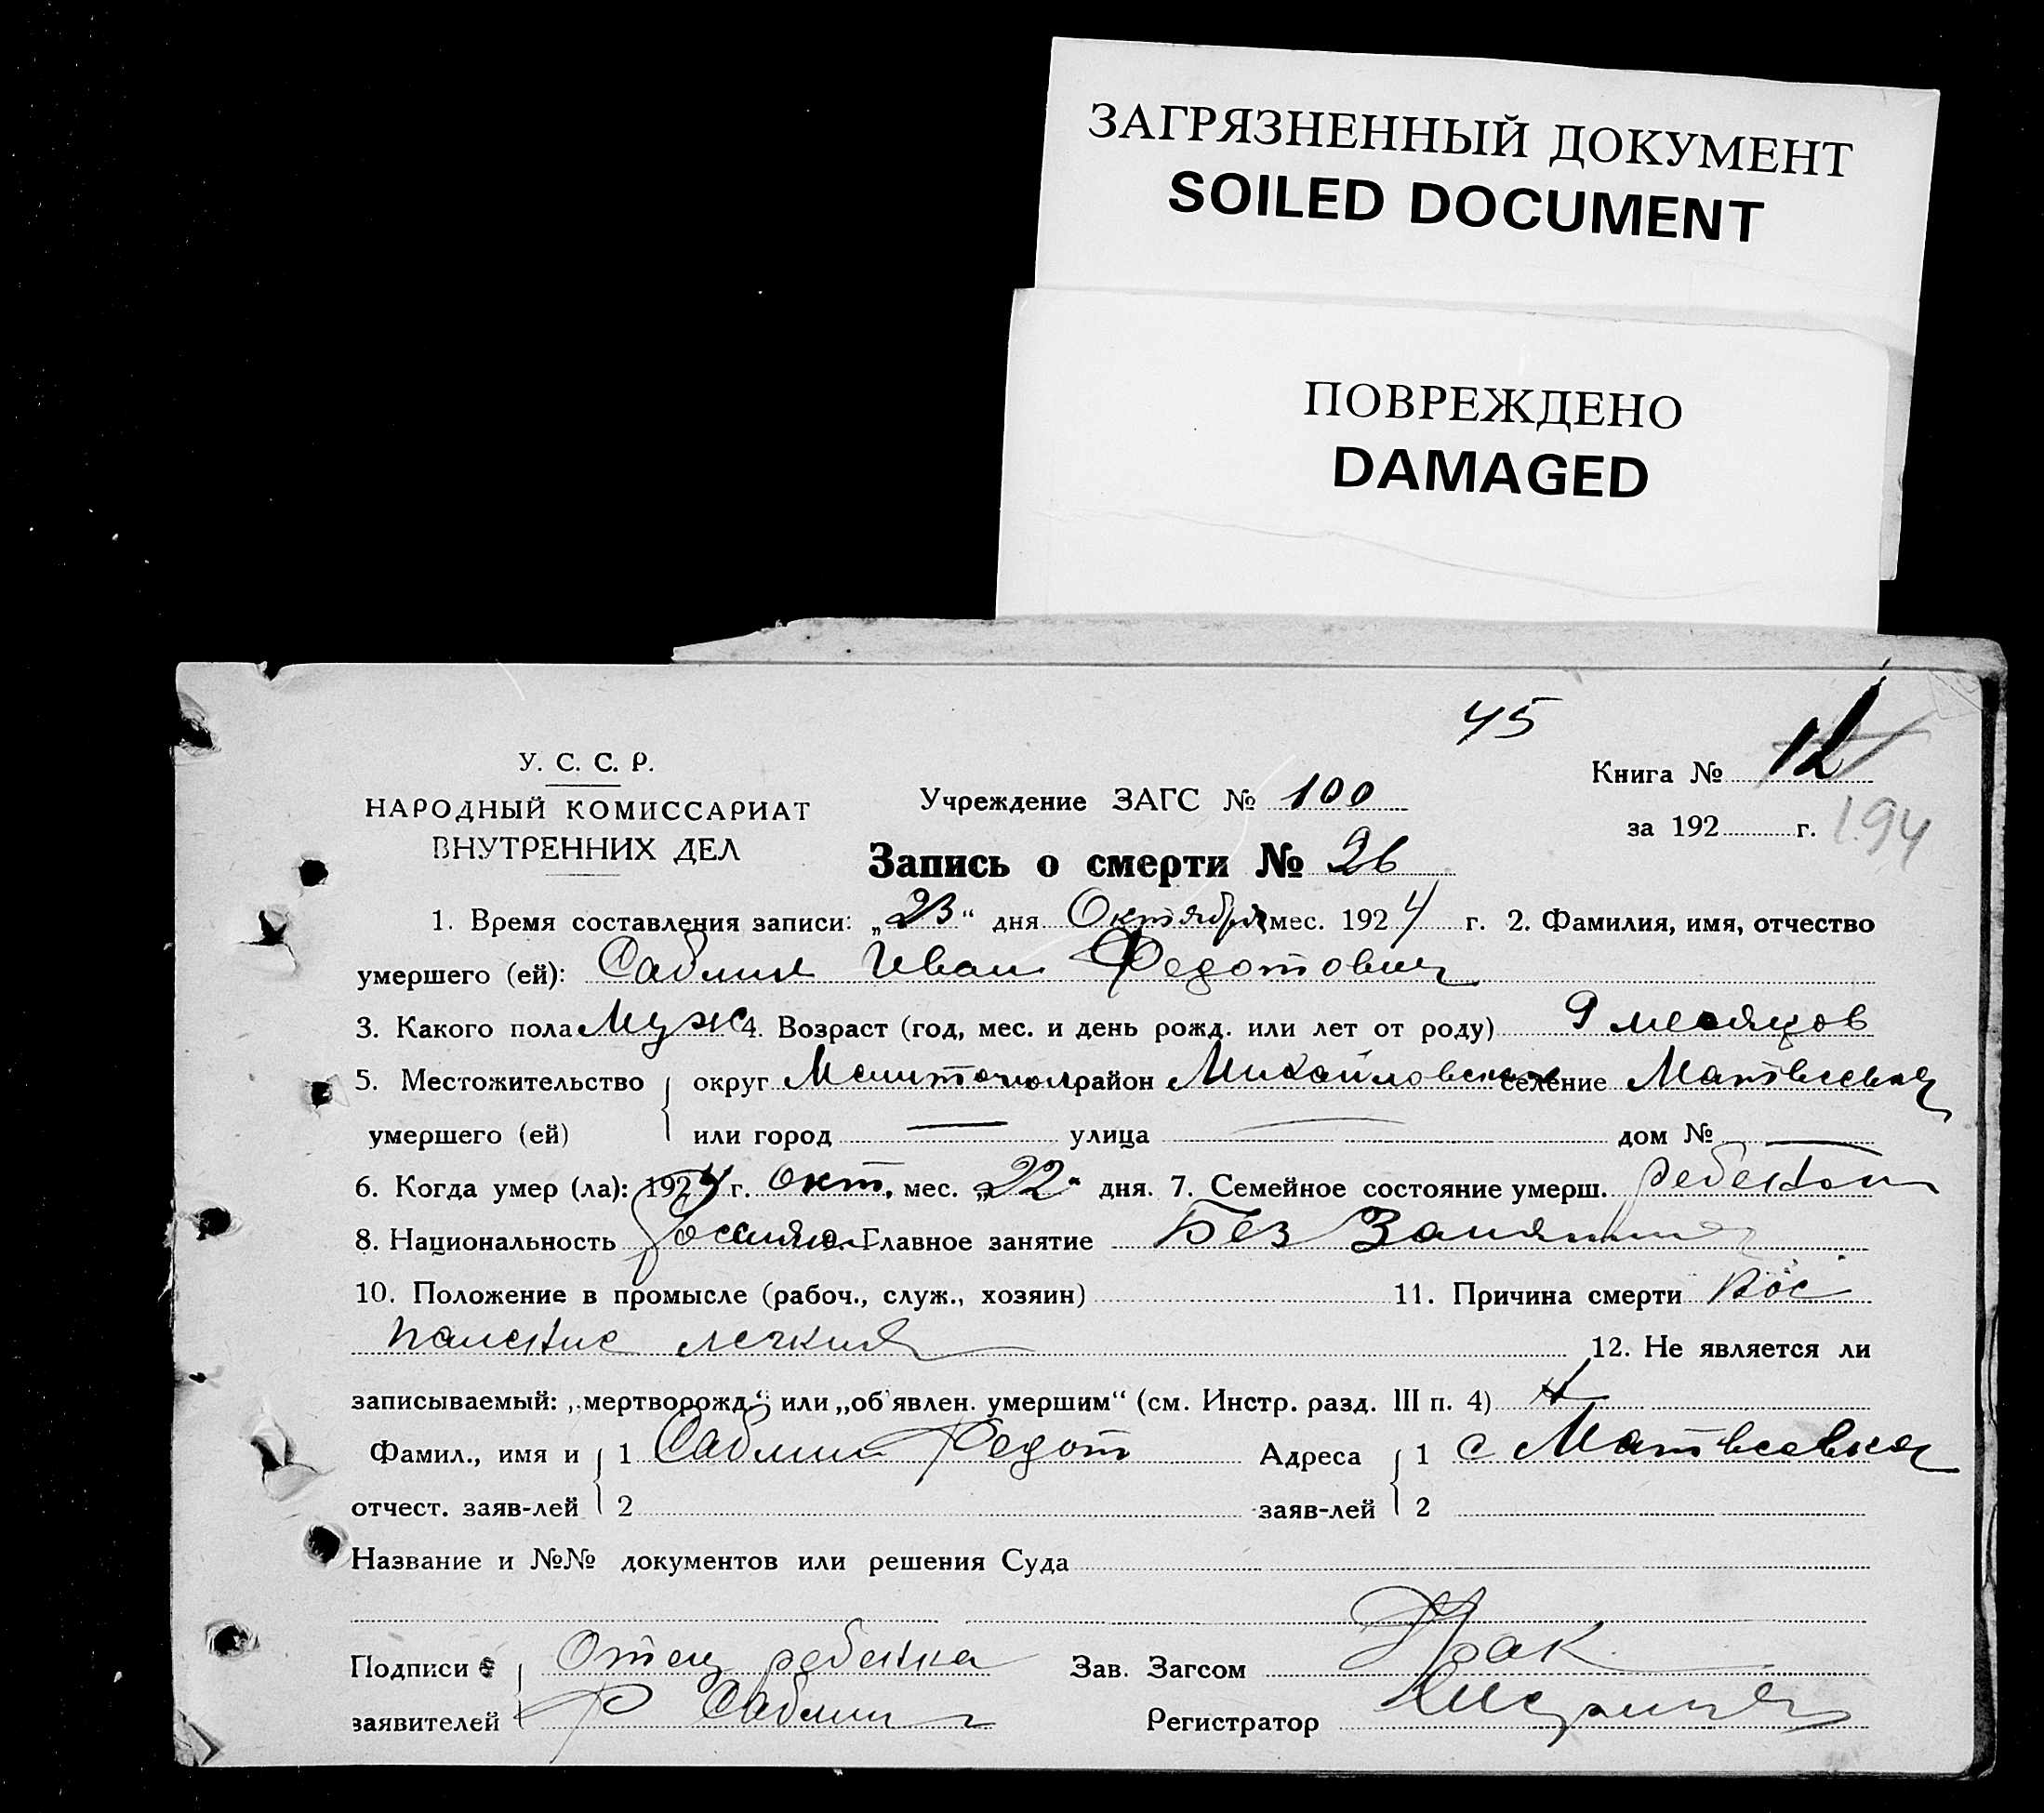 ЗАГРЯЗНЕННЫЙ ДОКУМЕНТ
SOILED DOCUMENT
ПОВРЕЖДЕНО
DAMAGED
45
У. С. С. Р.
НАРОДНЫЙ КОМИССАРИАТ
ВНУТРЕННИХ ДЕЛ
Учреждение ЗАГС № 100
Книга №
за 192 г. 194
Запись о смерти № 26
1. Время составления записи: „23“ дня Октября мес. 1924 г. 2. Фамилия, имя, отчество
умершего (ей): Саблин Иван Федотович
3. Какого пола Муж 4. Возраст (год, мес. и день рожд. или лет от роду) 9 месяцов
5. Местожительство округ Мелитопол район Михайловский селение Матвеевка
умершего (ей) или город — улица — дом № —
6. Когда умер (ла): 1924 г. окт. мес. „22“ дня. 7. Семейное состояние умерш. ребенок
8. Национальность Главное занятие Без Занятия
10. Положение в промысле (рабоч., служ., хозяин) 11. Причина смерти Вос
паление легких 12. Не является ли
записываемый: „мертворожд.“ или „об'явлен. умершим“ (см. Инстр. разд. III п. 4)
Фамил., имя и 1 Саблин Федот Адреса 1 с Матвеевка
отчест. заяв-лей 2 заяв-лей 2
Название и №№ документов или решения Суда
Подписи Отец ребенка Зав. Загсом
заявителей Ф Саблин Регистратор